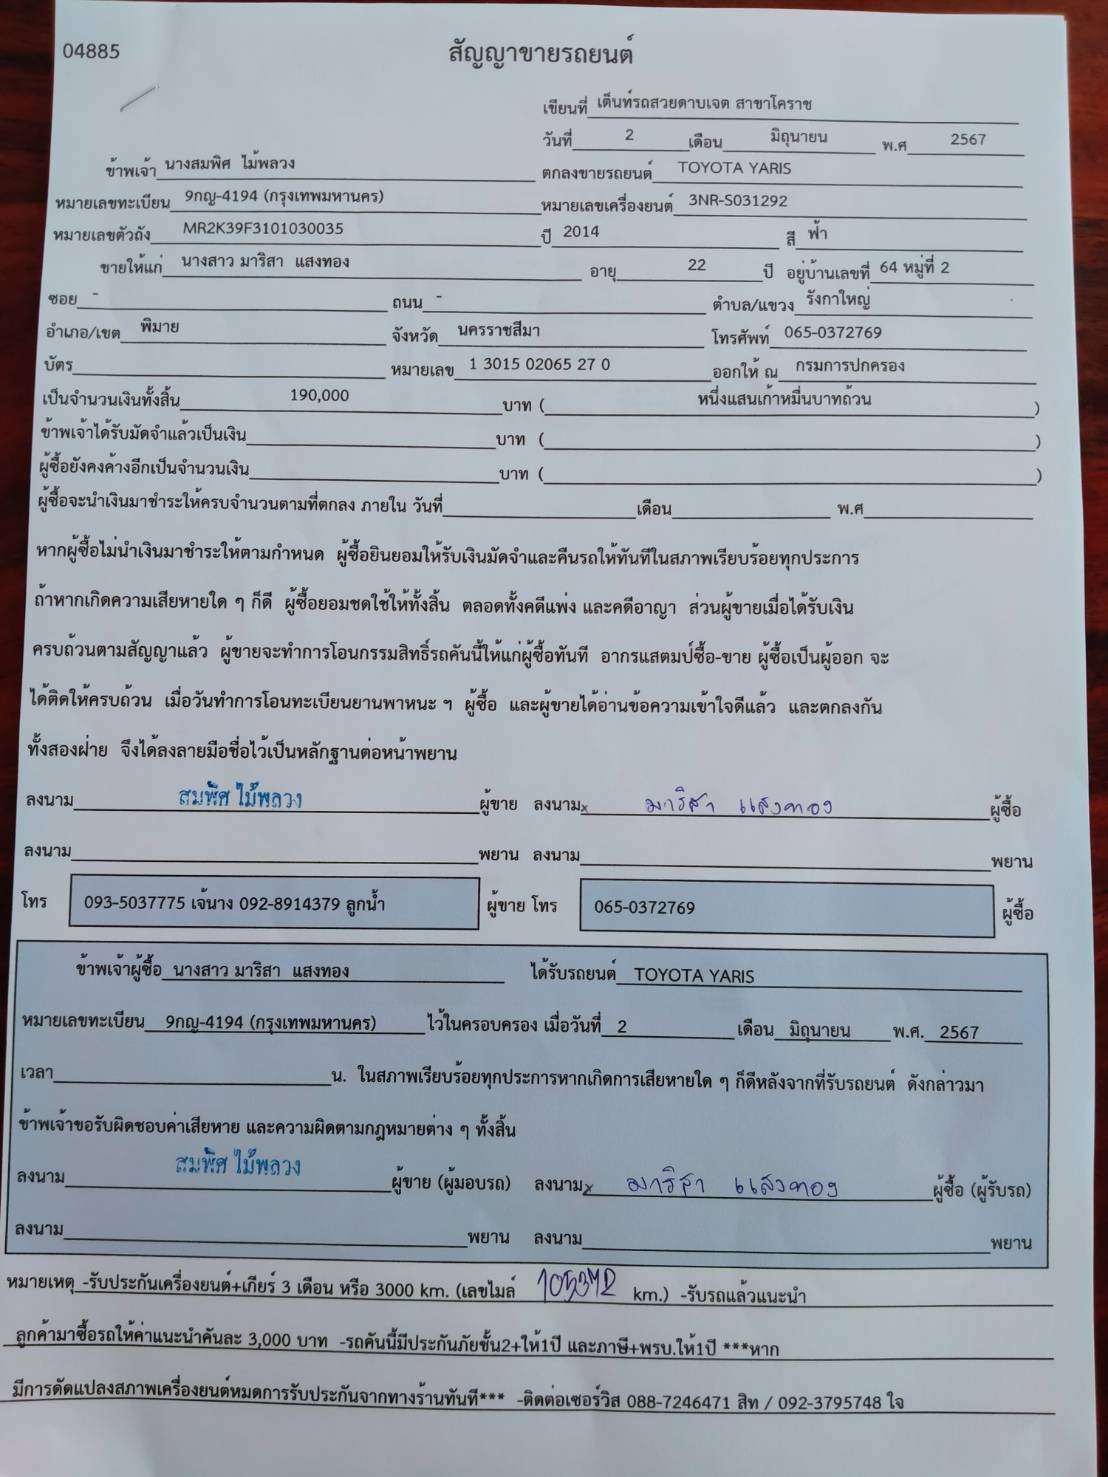 04885
สัญญาขายรถยนต์
เขียนที่ เต็นท์รถสวยดาบเจต สาขาโคราช
วันที่ 2 เดือน มิถุนายน พ.ศ 2567
ข้าพเจ้า นางสมพิศ ไม้พลวง ตกลงขายรถยนต์ TOYOTA YARIS
หมายเลขทะเบียน 9กญ-4194 (กรุงเทพมหานคร) หมายเลขเครื่องยนต์ 3NR-S031292
หมายเลขตัวถัง MR2K39F3101030035 ปี 2014 สี ฟ้า
ขายให้แก่ นางสาว มาริสา แสงทอง อายุ 22 ปี อยู่บ้านเลขที่ 64 หมู่ที่ 2
ซอย - ถนน - ตำบล/แขวง รังกาใหญ่
อำเภอ/เขต พิมาย จังหวัด นครราชสีมา โทรศัพท์ 065-0372769
บัตร หมายเลข 1 3015 02065 27 0 ออกให้ ณ กรมการปกครอง
เป็นจำนวนเงินทั้งสิ้น 190,000 บาท ( หนึ่งแสนเก้าหมื่นบาทถ้วน )
ข้าพเจ้าได้รับมัดจำแล้วเป็นเงิน บาท ( )
ผู้ซื้อยังคงค้างอีกเป็นจำนวนเงิน บาท ( )
ผู้ซื้อจะนำเงินมาชำระให้ครบจำนวนตามที่ตกลง ภายใน วันที่ เดือน พ.ศ
หากผู้ซื้อไม่นำเงินมาชำระให้ตามกำหนด ผู้ซื้อยินยอมให้รับเงินมัดจำและคืนรถให้ทันทีในสภาพเรียบร้อยทุกประการ
ถ้าหากเกิดความเสียหายใด ๆ ก็ดี ผู้ซื้อยอมชดใช้ให้ทั้งสิ้น ตลอดทั้งคดีแพ่ง และคดีอาญา ส่วนผู้ขายเมื่อได้รับเงิน
ครบถ้วนตามสัญญาแล้ว ผู้ขายจะทำการโอนกรรมสิทธิ์รถคันนี้ให้แก่ผู้ซื้อทันที อากรแสตมป์ซื้อ-ขาย ผู้ซื้อเป็นผู้ออก จะ
ได้ติดให้ครบถ้วน เมื่อวันทำการโอนทะเบียนยานพาหนะ ฯ ผู้ซื้อ และผู้ขายได้อ่านข้อความเข้าใจดีแล้ว และตกลงกัน
ทั้งสองฝ่าย จึงได้ลงลายมือชื่อไว้เป็นหลักฐานต่อหน้าพยาน
ลงนาม สมพิศ ไม้พลวง ผู้ขาย ลงนาม x มาริสา แสงทอง ผู้ซื้อ
ลงนาม พยาน ลงนาม พยาน
โทร 093-5037775 เจ้นาง 092-8914379 ลูกน้ำ ผู้ขาย โทร 065-0372769 ผู้ซื้อ
ข้าพเจ้าผู้ซื้อ นางสาว มาริสา แสงทอง ได้รับรถยนต์ TOYOTA YARIS
หมายเลขทะเบียน 9กญ-4194 (กรุงเทพมหานคร) ไว้ในครอบครอง เมื่อวันที่ 2 เดือน มิถุนายน พ.ศ. 2567
เวลา น. ในสภาพเรียบร้อยทุกประการหากเกิดการเสียหายใด ๆ ก็ดีหลังจากที่รับรถยนต์ ดังกล่าวมา
ข้าพเจ้าขอรับผิดชอบค่าเสียหาย และความผิดตามกฎหมายต่าง ๆ ทั้งสิ้น
ลงนาม สมพิศ ไม้พลวง ผู้ขาย (ผู้มอบรถ) ลงนาม x มาริสา แสงทอง ผู้ซื้อ (ผู้รับรถ)
ลงนาม พยาน ลงนาม พยาน
หมายเหตุ -รับประกันเครื่องยนต์+เกียร์ 3 เดือน หรือ 3000 km. (เลขไมล์ 105372 km.) -รับรถแล้วแนะนำ
ลูกค้ามาซื้อรถให้ค่าแนะนำคันละ 3,000 บาท -รถคันนี้มีประกันภัยชั้น2+ให้1ปี และภาษี+พรบ.ให้1ปี ***หาก
มีการดัดแปลงสภาพเครื่องยนต์หมดการรับประกันจากทางร้านทันที*** -ติดต่อเซอร์วิส 088-7246471 สิท / 092-3795748 ใจ